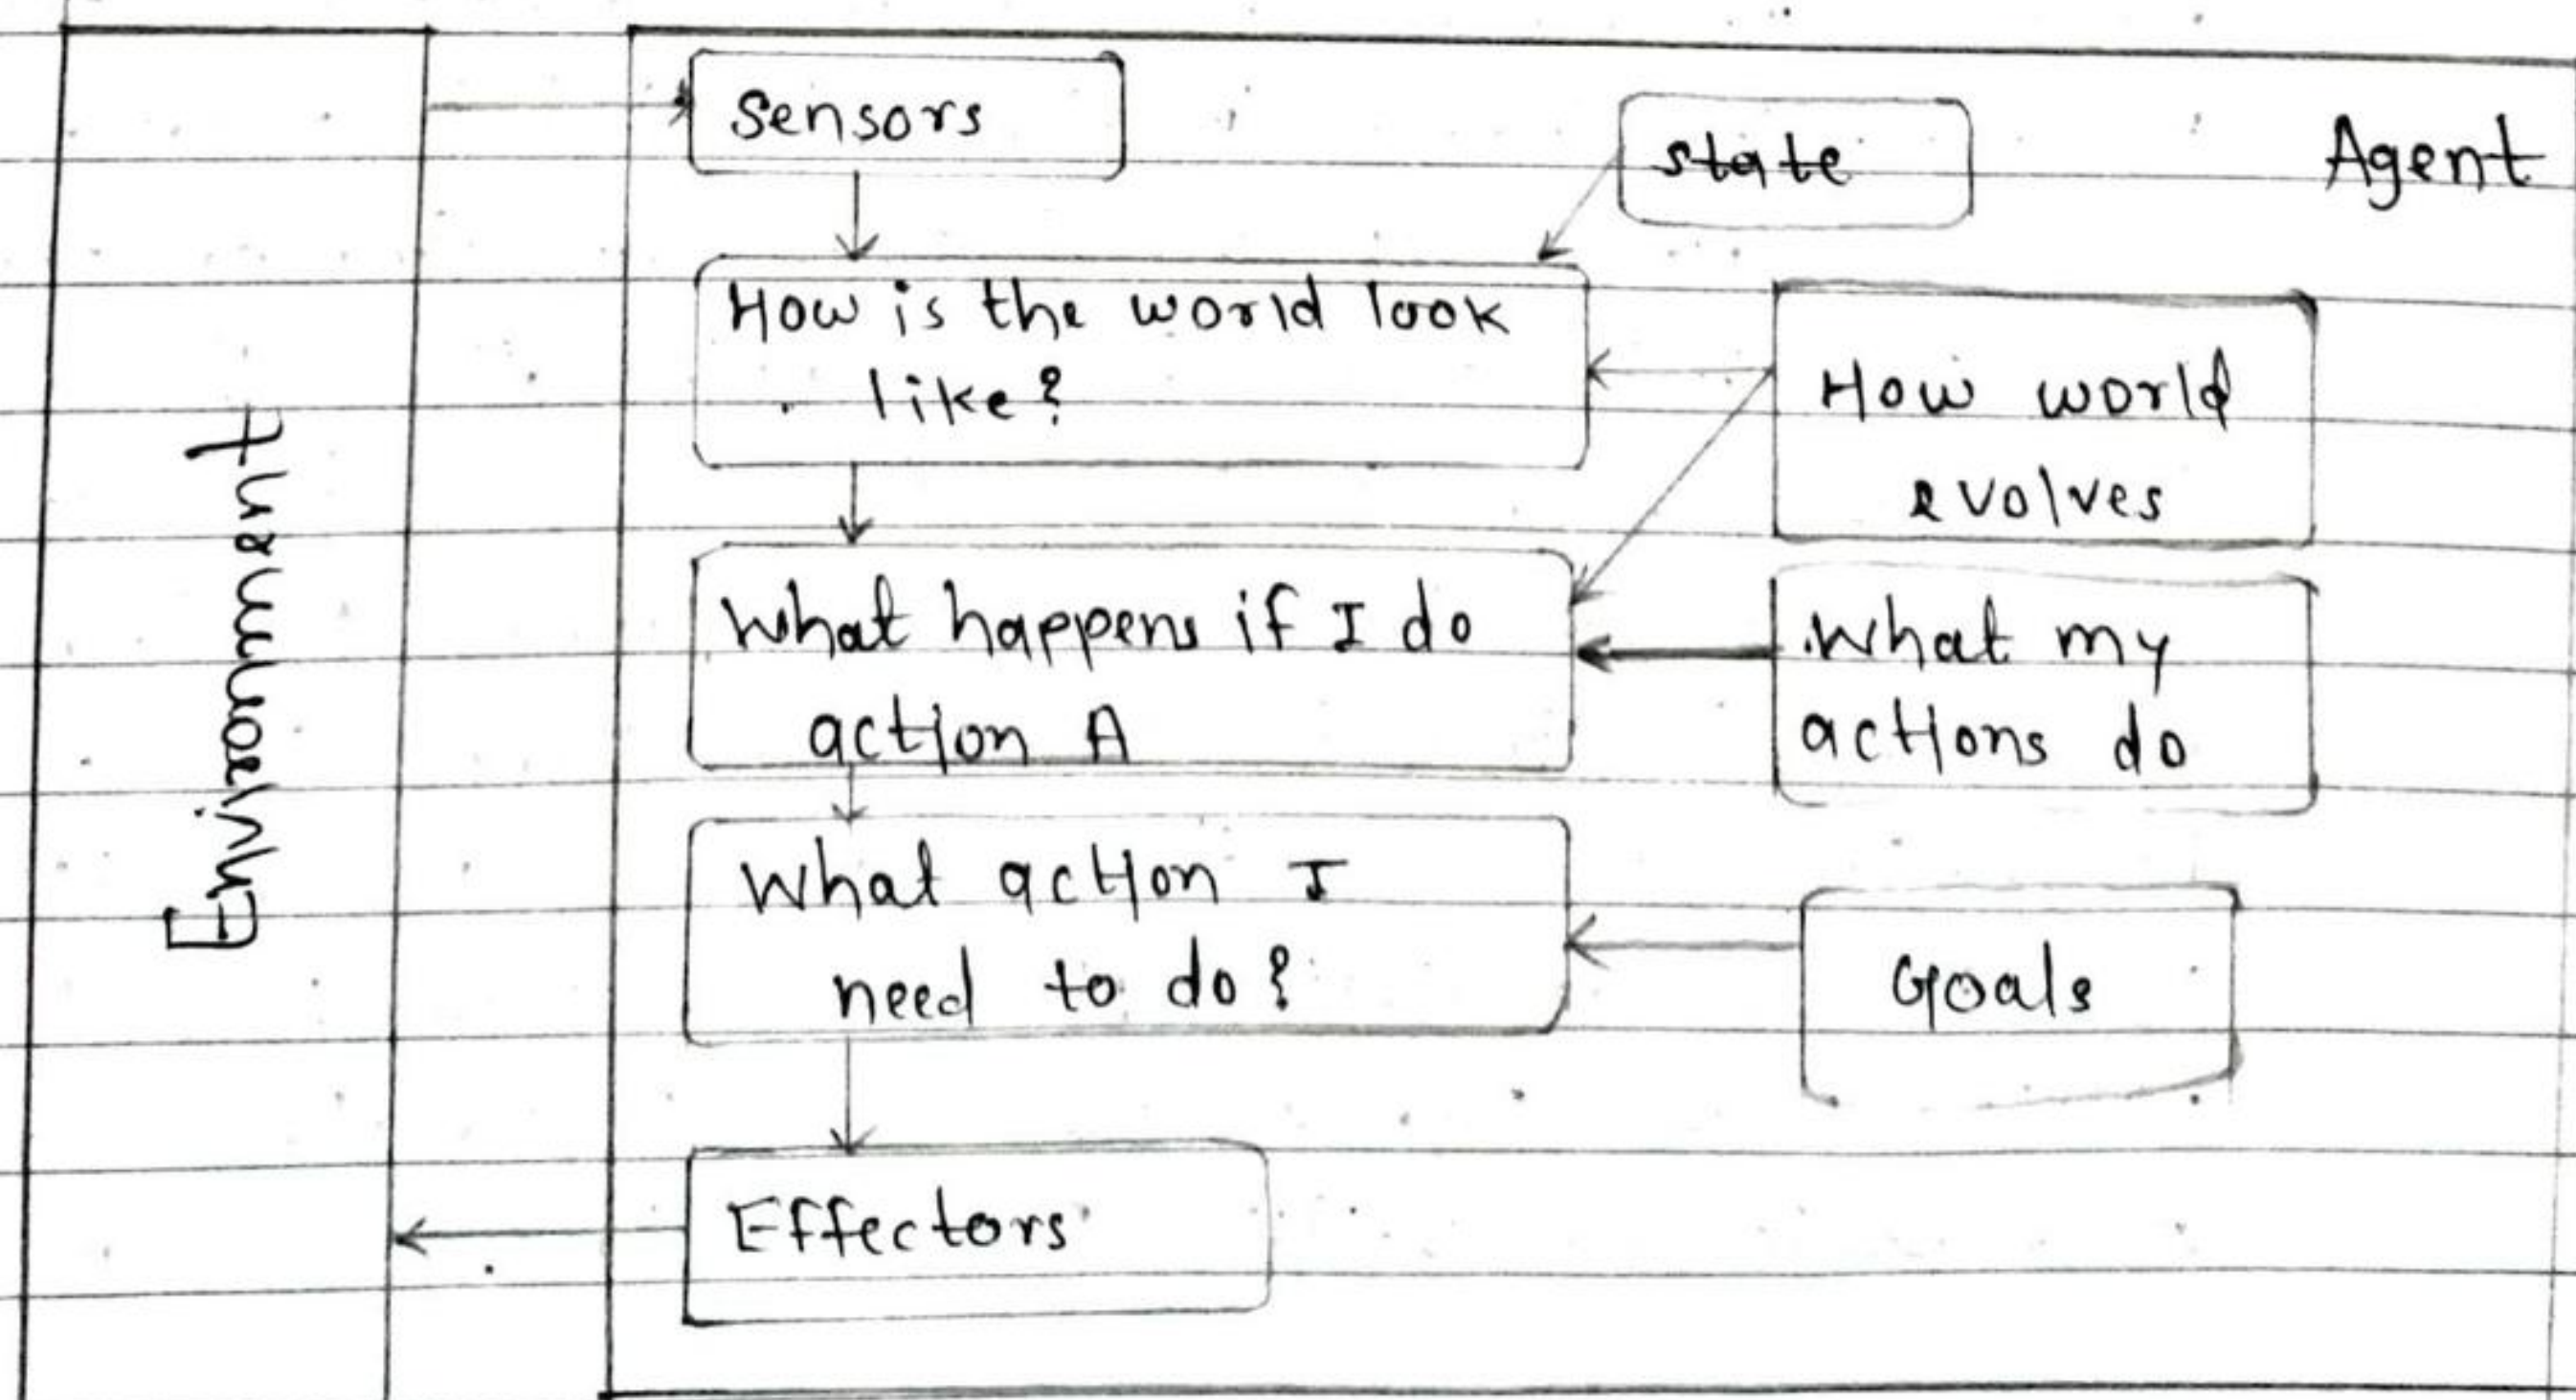 Sensors
state
Agent
How is the world look
like?
How world
evolves
What happens if I do
action A
What my
actions do
What action I
need to do?
Goals
Effectors
Environment